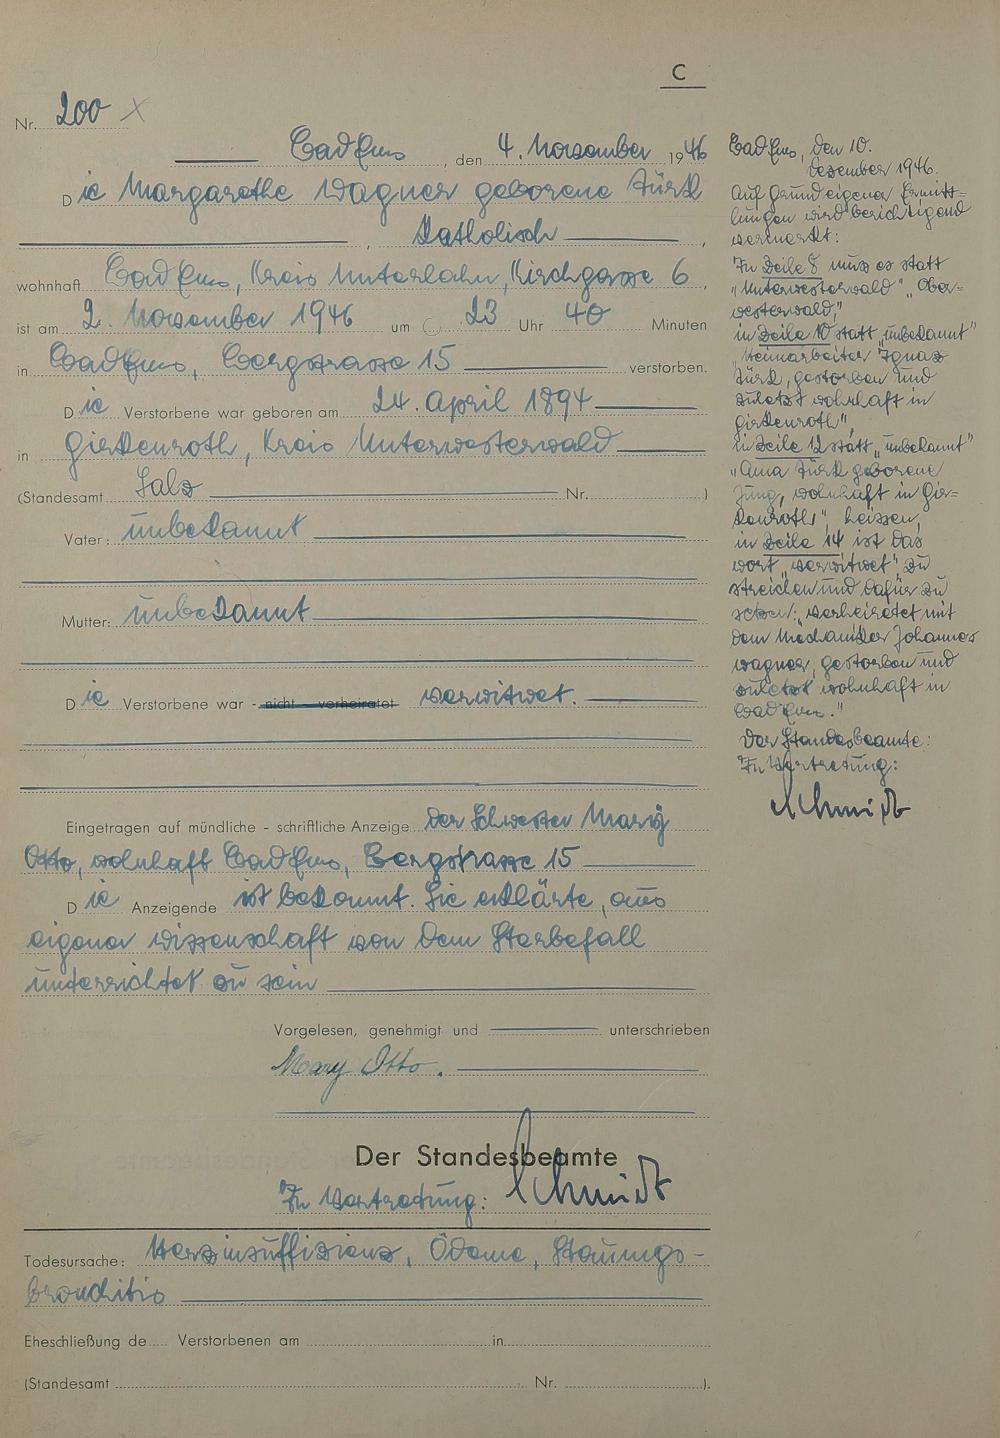 C
Nr. 200 X
Bad Ems, den 4. November 1946
Die Margarethe Wagner geborene Türk
, katholisch ,
wohnhaft Bad Ems, Kreis Unterlahn, Kirchgasse 6,
ist am 2. November 1946 um 23 Uhr 40 Minuten
in Bad Ems, Bergstrasse 15 verstorben.
Die Verstorbene war geboren am 24. April 1894
in Girkenroth, Kreis Unterwesterwald
(Standesamt Salz Nr. )
Vater: unbekannt
Mutter: unbekannt
Die Verstorbene war - nicht - verheiratet verwitwet.
Eingetragen auf mündliche - schriftliche Anzeige der Schwester Mary
Otto, wohnhaft Bad Ems, Bergstrasse 15
Die Anzeigende ist bekannt. Sie erklärte, aus
eigener Wissenschaft von dem Sterbefall
unterrichtet zu sein
Vorgelesen, genehmigt und unterschrieben
Mary Otto.
Der Standesbeamte
In Vertretung: Schmidt
Todesursache: Herzinsuffizienz, Ödeme, Stauungs-
bronchitis
Eheschließung de Verstorbenen am in
(Standesamt Nr. ).
Bad Ems, den 10.
Dezember 1946.
Auf Grund eigener Ermitt-
lungen wird berichtigend
vermerkt:
In Zeile 8 muss es statt
"Unterwesterwald" "Ober-
westerwald",
in Zeile 10 statt "unbekannt"
"Steinarbeiter Ignaz
Türk, gestorben und
zuletzt wohnhaft in
Girkenroth",
in Zeile 12 statt "unbekannt"
"Anna Türk geborene
Jung, wohnhaft in Gir-
kenroth", heissen,
in Zeile 14 ist das
Wort "verwitwet" zu
streichen und dafür zu
setzen: "verheiratet mit
dem Mechaniker Johannes
Wagner, gestorben und
zuletzt wohnhaft in
Bad Ems."
Der Standesbeamte:
In Vertretung:
Schmidt